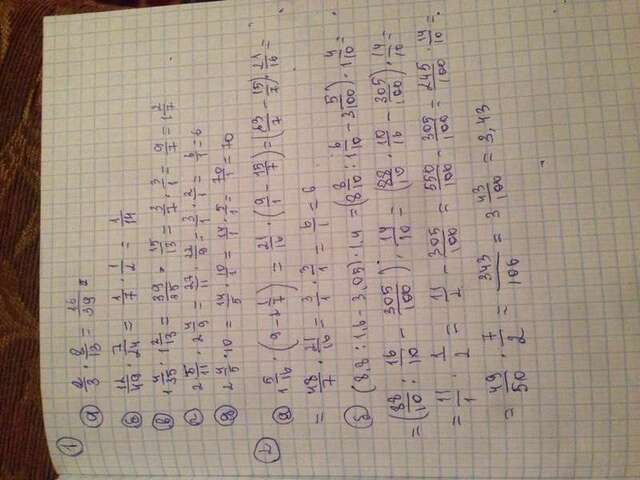 1
а) 2/3 · 8/13 = 16/39
б) 12/49 · 7/24 = 1/7 · 1/2 = 1/14
в) 1 4/35 · 1 2/13 = 39/35 · 15/13 = 3/7 · 3/1 = 9/7 = 1 2/7
г) 2 5/11 · 2 4/9 = 27/11 · 22/9 = 3/1 · 2/1 = 6/1 = 6
д) 2 4/5 · 10 = 14/5 · 10/1 = 14/1 · 5/1 = 70/1 = 70
2
а) 1 5/16 · (9 - 2 1/7) = 21/16 · (9/1 - 15/7) = (63/7 - 15/7) · 21/16 =
= 48/7 · 21/16 = 3/1 · 3/1 = 6/1 = 6
б) (8,8 : 1,6 - 3,05) · 1,4 = (8 8/10 : 1 6/10 - 3 5/100) · 1 4/10 =
= (88/10 : 16/10 - 305/100) · 14/10 = (88/10 · 10/16 - 305/100) · 14/10 =
= 11/1 · 1/2 = 11/2 - 305/100 = 550/100 - 305/100 = 245/100 · 14/10 =
= 49/50 · 7/2 = 343/100 = 3 43/100 = 3,43